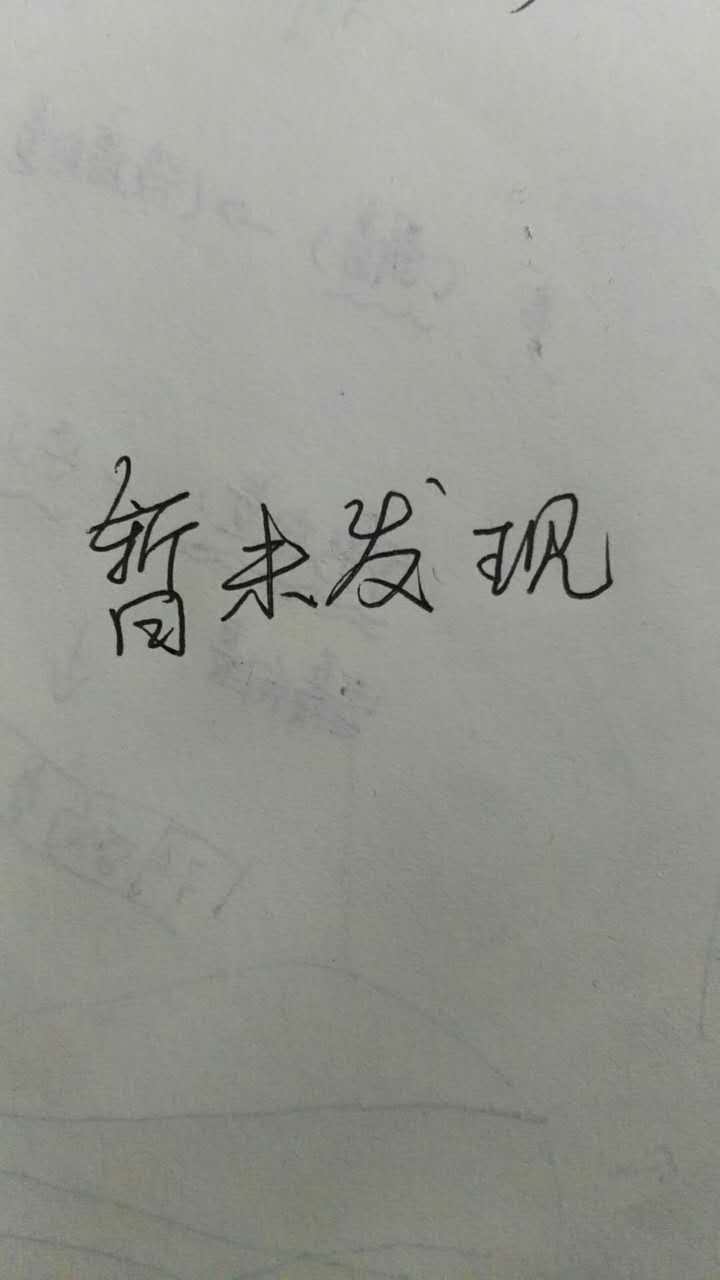 暂未发现